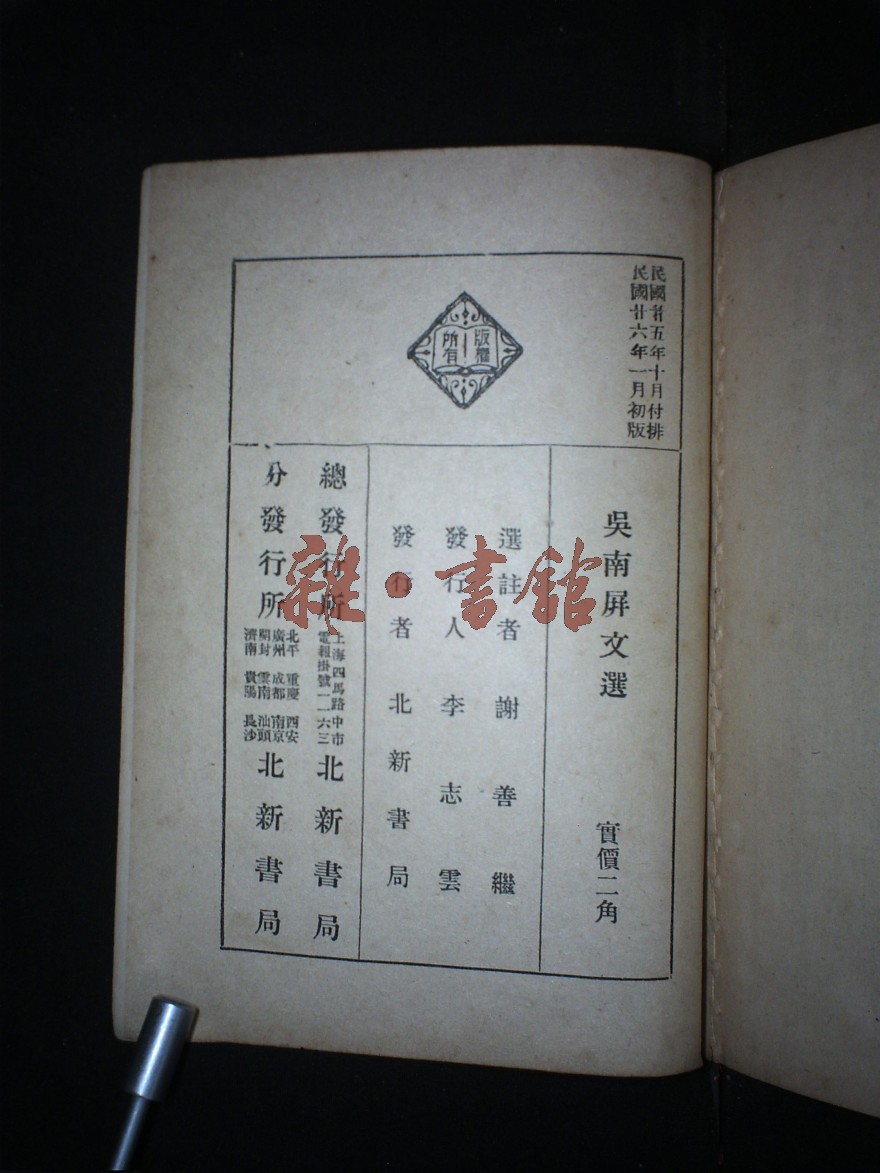 民國廿五年十月付排
民國廿六年一月初版
版權
所有
吳南屏文選
實價二角
選註者 謝善繼
發行人 李志雲
發行者 北新書局
總發行所 上海四馬路中市 電報掛號一一六三 北新書局
分發行所 北平 重慶 西安 廣州 成都 南京 開封 雲南 汕頭 濟南 貴陽 長沙 北新書局
雜·書館